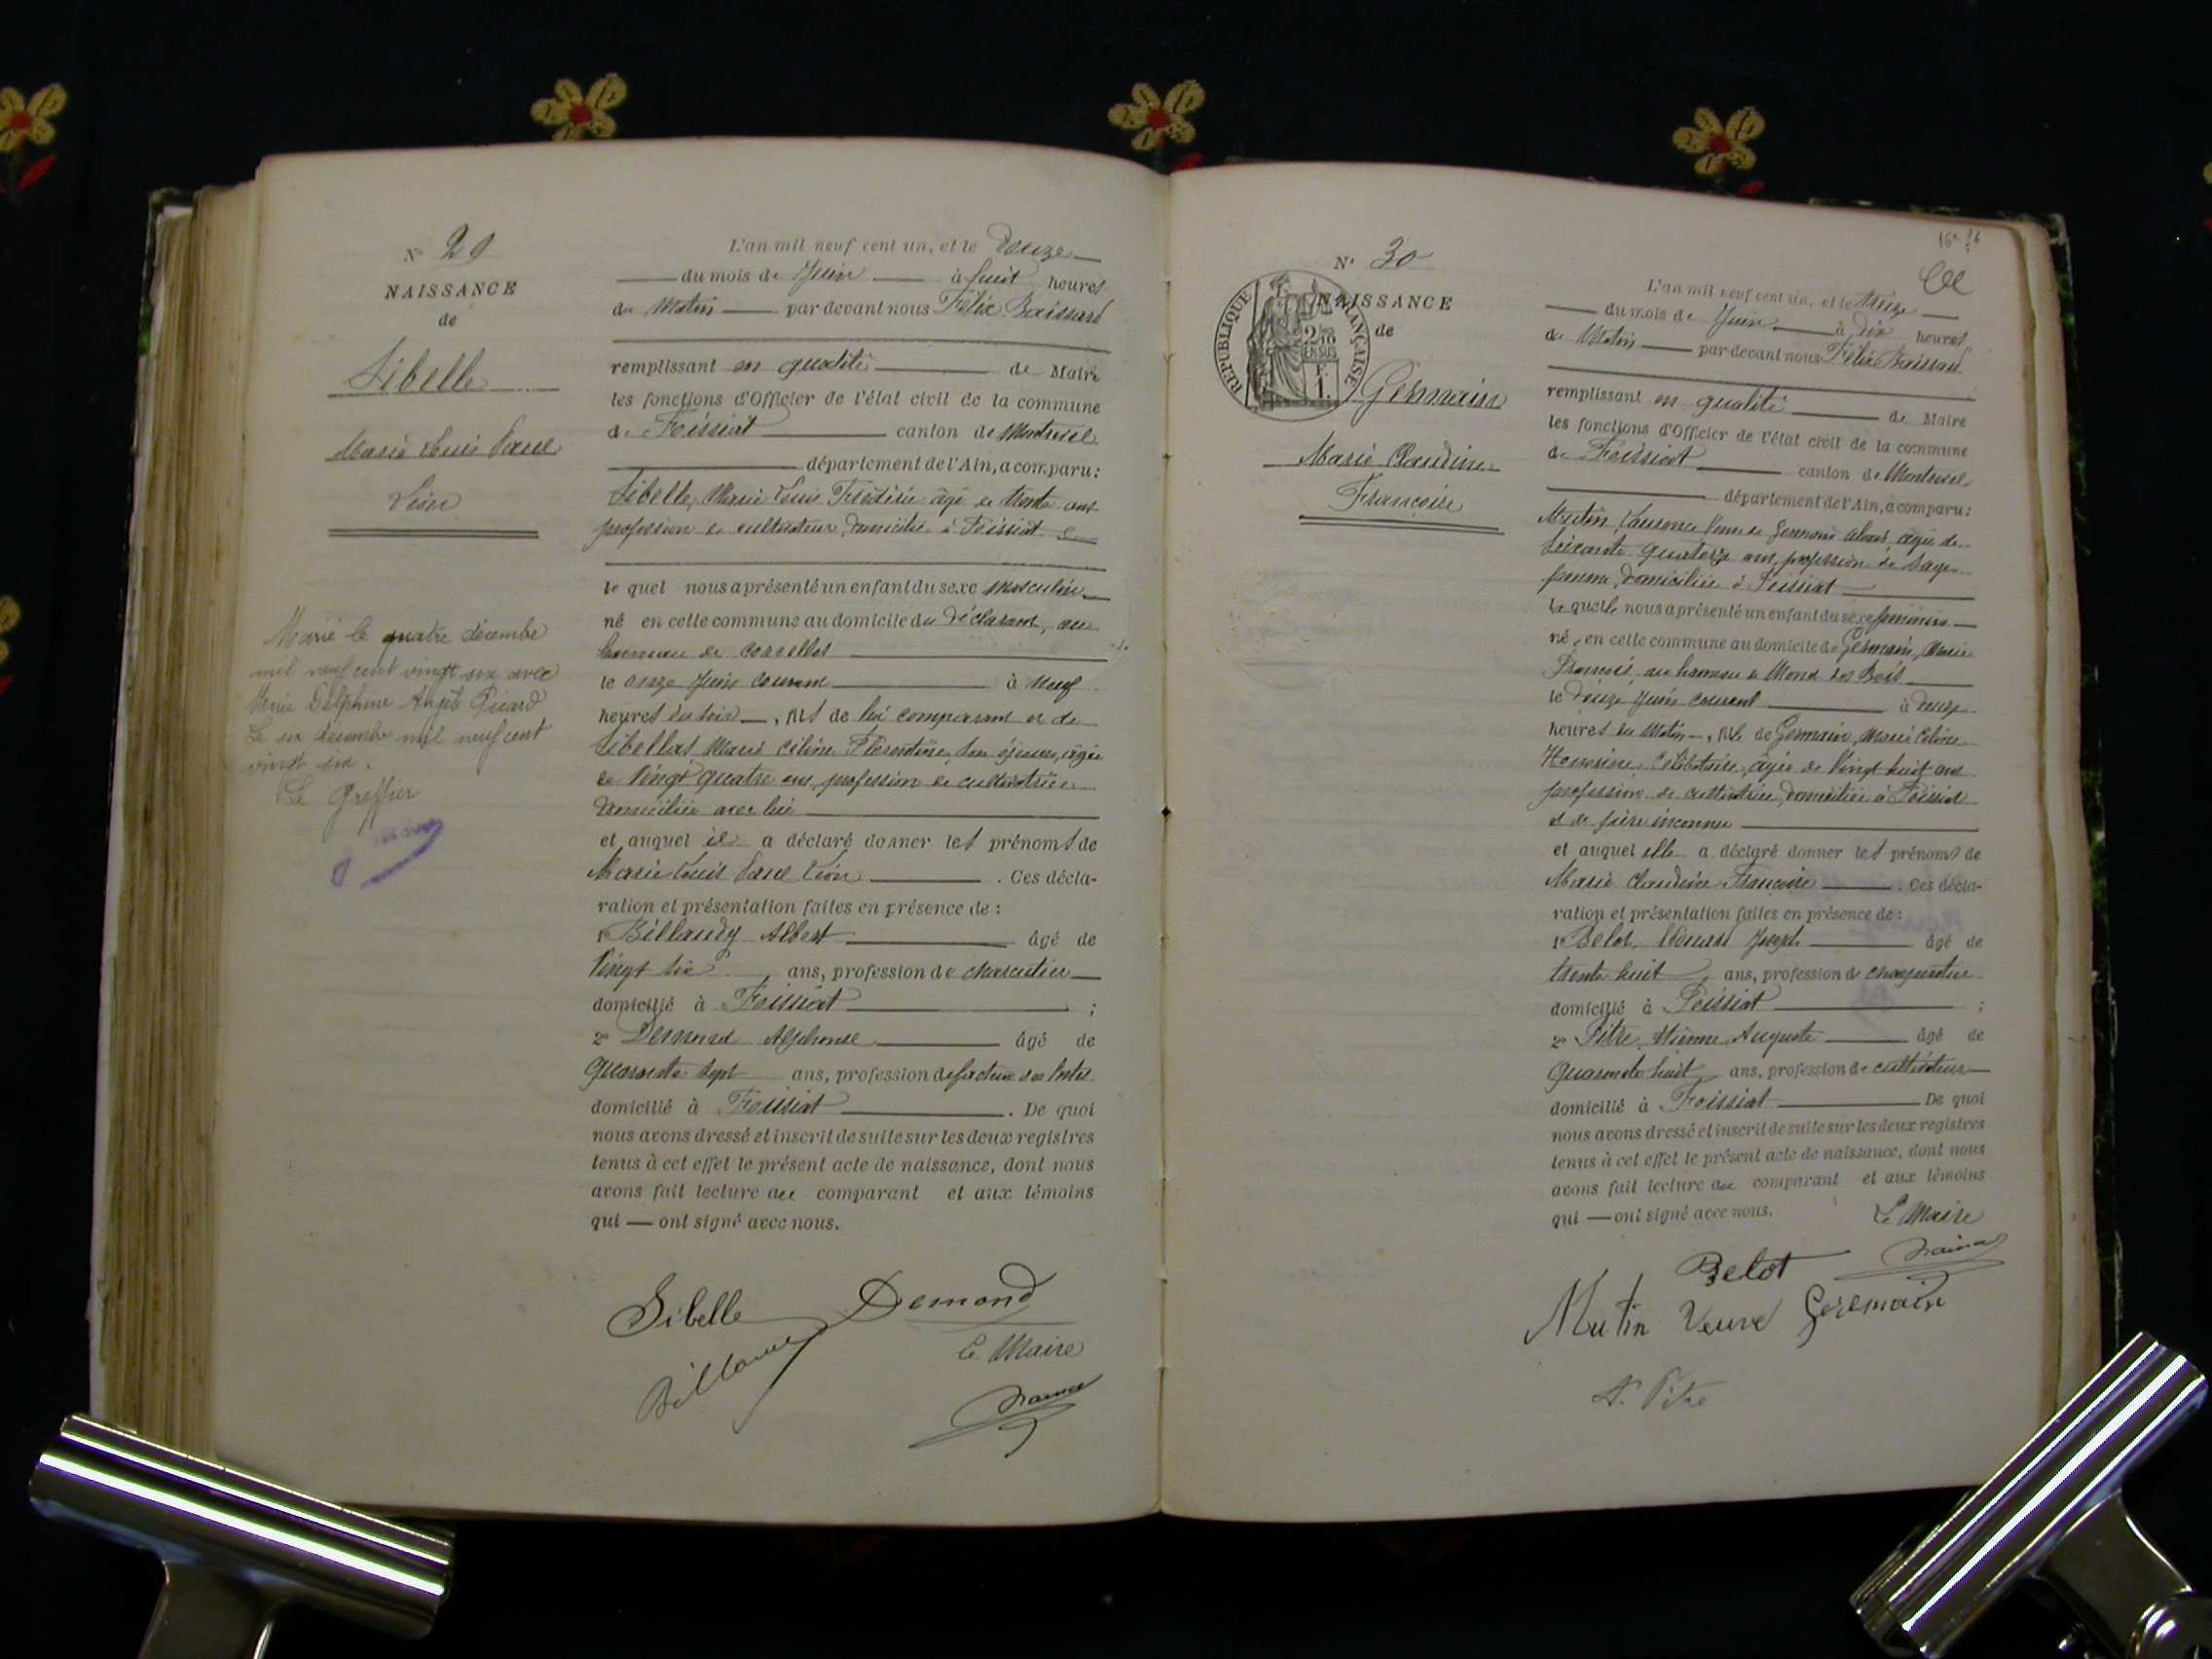 N° 29
NAISSANCE
de
Sibelle
Marie Louis Paul
Léon
Marié le quatre décembre
mil neuf cent vingt six avec
Marie Delphine Angèle Picard
Le six décembre mil neuf cent
vingt six.
Le Greffier
L'an mil neuf cent un, et le Douze
du mois de Juin à huit heures
du Matin par-devant nous Félix
remplissant en qualité de Maire
les fonctions d'Officier de l'état civil de la commune
de Foissiat canton de Montrevel
département de l'Ain, a comparu:
Sibelle, Marie Louis Frédéric âgé de trente ans
profession de cultivateur, domicilié à Foissiat
le quel nous a présenté un enfant du sexe masculin
né en cette commune au domicile du déclarant, au
hameau de Corcelles
le onze Juin courant à neuf
heures du soir, fils de lui comparant et de
Sibellas, Marie Céline Florentine, son épouse, âgée
de vingt quatre ans, profession de cultivatrice
domiciliée avec lui
et auquel il a déclaré donner les prénoms de
Marie Louis Paul Léon. Ces décla-
ration et présentation faites en présence de :
1° Billaudy Albert âgé de
Vingt six ans, profession de charcutier
domicilié à Foissiat ;
2° Demond Alphonse âgé de
quarante sept ans, profession de facteur des Postes
domicilié à Foissiat. De quoi
nous avons dressé et inscrit de suite sur les deux registres
tenus à cet effet le présent acte de naissance, dont nous
avons fait lecture au comparant et aux témoins
qui — ont signé avec nous.
Sibelle Demond
Le Maire
N° 30
NAISSANCE
de
REPUBLIQUE FRANÇAISE
2/10
EN SUS
1 F.
Germain
Marie Claudine
Françoise
L'an mil neuf cent un, et le treize
du mois de Juin à dix heures
du Matin par-devant nous Félix
remplissant en qualité de Maire
les fonctions d'Officier de l'état civil de la commune
de Foissiat canton de Montrevel
département de l'Ain, a comparu:
Mutin, Laurence Veuve de Germain âgée de
soixante quatorze ans, profession de sage
femme, domiciliée à Foissiat
la quelle nous a présenté un enfant du sexe féminin
né, en cette commune au domicile de Germain, Marie
François, au hameau de Mond des Bois
le douze Juin courant à
heures du Matin, fille de Germain, Marie Céline
célibataire, âgée de vingt huit ans
profession de cultivatrice, domiciliée à Foissiat
et de père inconnu
et auquel elle a déclaré donner les prénoms de
Marie Claudine Françoise. Ces décla-
ration et présentation faites en présence de :
1° Belot, Edouard Joseph âgé de
trente huit ans, profession de charpentier
domicilié à Foissiat ;
2° Pitre, Etienne Auguste âgé de
quarante huit ans, profession de cultivateur
domicilié à Foissiat De quoi
nous avons dressé et inscrit de suite sur les deux registres
tenus à cet effet le présent acte de naissance, dont nous
avons fait lecture au comparant et aux témoins
qui — ont signé avec nous.
Le Maire
Belot
Mutin Veuve Germain
A. Pitre